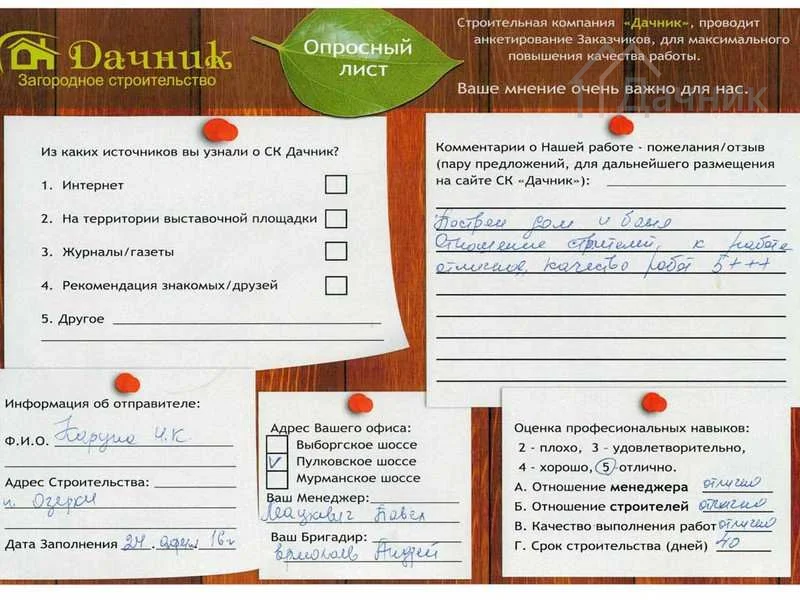 Дачник
Загородное строительство
Опросный
лист
Строительная компания «Дачник», проводит
анкетирование Заказчиков, для максимального
повышения качества работы.
Ваше мнение очень важно для нас.
Дачник
Из каких источников вы узнали о СК Дачник?
1. Интернет
2. На территории выставочной площадки
3. Журналы/газеты
4. Рекомендация знакомых/друзей
5. Другое
Комментарии о Нашей работе - пожелания/отзыв
(пару предложений, для дальнейшего размещения
на сайте СК «Дачник»):
дом и баня
Отношение к работе
отличное, качество работ 5+++
Информация об отправителе:
Ф.И.О. И.К
Адрес Строительства:
п. Озерки
Дата Заполнения 24 16г
Адрес Вашего офиса:
Выборгское шоссе
Пулковское шоссе
Мурманское шоссе
Ваш Менеджер:
Павел
Ваш Бригадир:
Андрей
Оценка професиональных навыков:
2 - плохо, 3 - удовлетворительно,
4 - хорошо, 5 - отлично.
А. Отношение менеджера отлично
Б. Отношение строителей отлично
В. Качество выполнения работ отлично
Г. Срок строительства (дней) 40